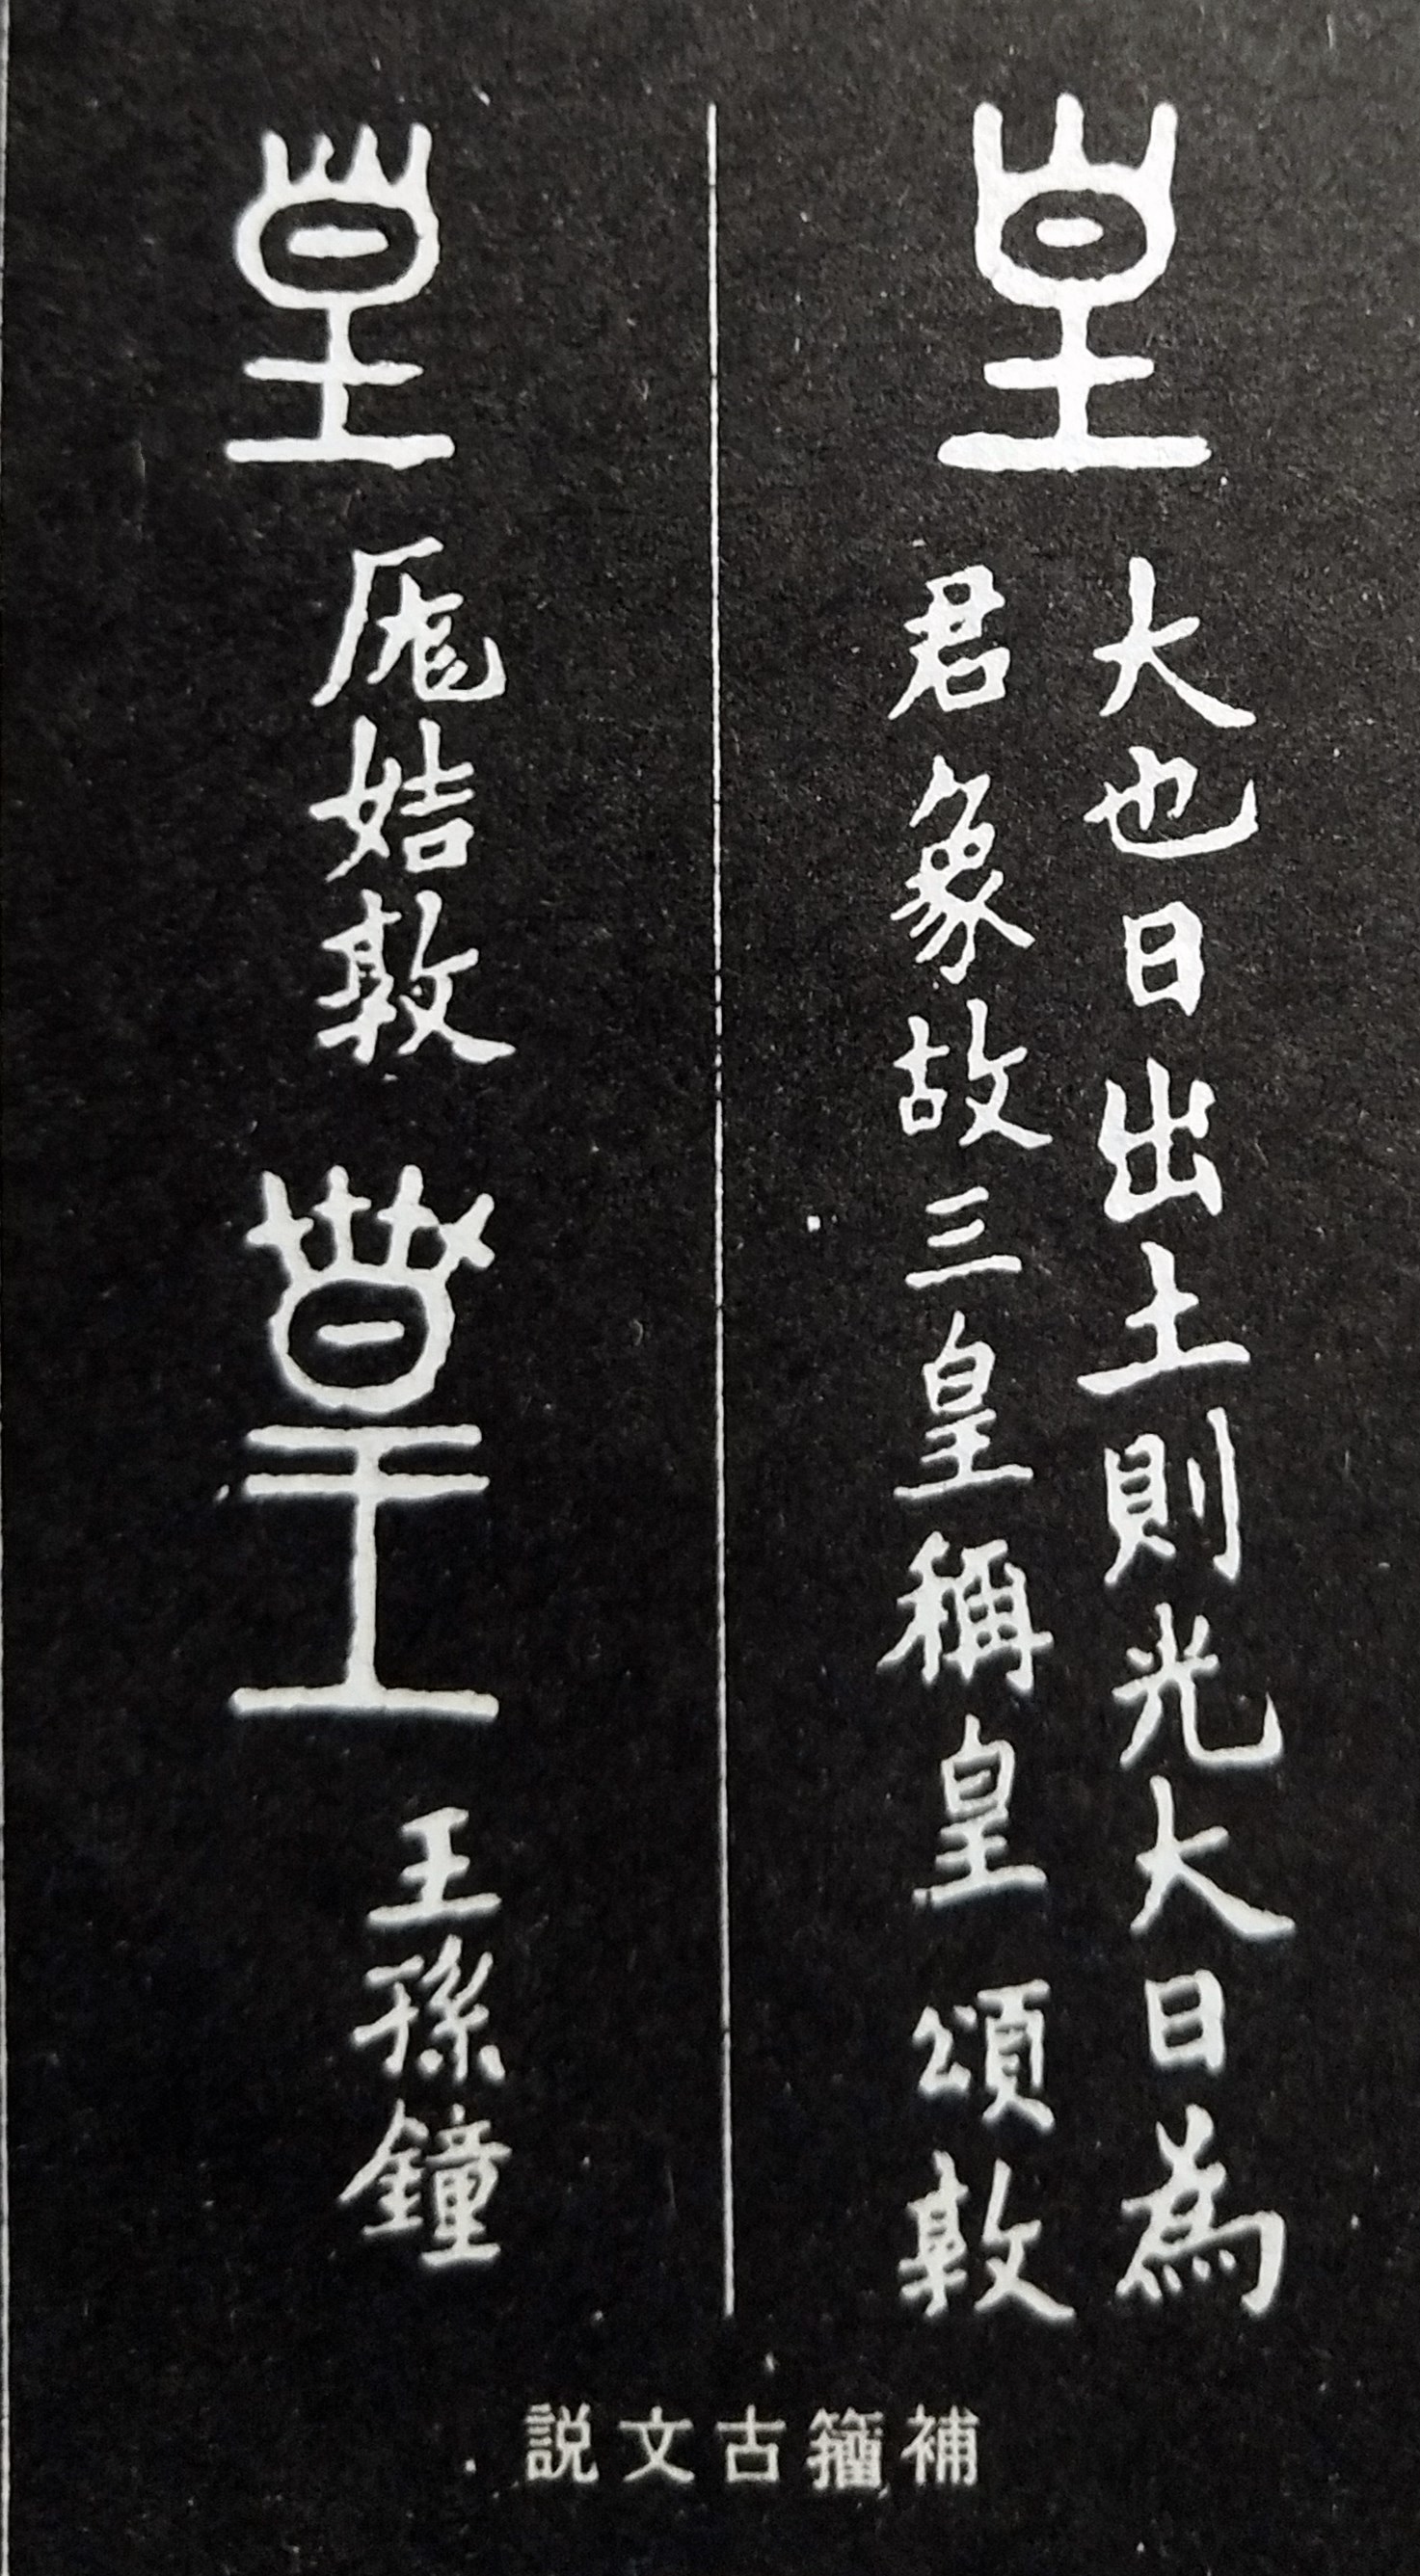 皇
大也日出土則光大日為
君象故三皇稱皇 頌敦
皇
姞敦
皇
王孫鐘
説文古籀補